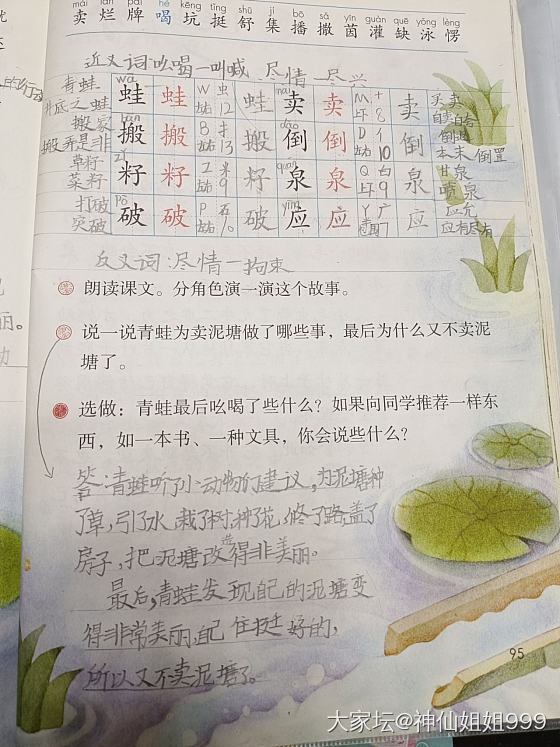 mài làn pái hē kēng tǐng shū jí bō sǎ yīn guàn quē yǒng lèng
卖 烂 牌 喝 坑 挺 舒 集 播 撒 茵 灌 缺 泳 愣
近义词:吆喝一叫喊 尽情一尽兴
青蛙 wā 蛙 蛙 W 虫 动 12 蛙 mài 卖 卖 M 十 8 卖 买卖
井底之蛙
搬家 bān 搬 搬 B 扌 动 13 搬 dào 倒 倒 D 亻 动 10 倒 倒地
搬弄是非 本末倒置
草籽 zǐ 籽 籽 Z 米 动 9 籽 quán 泉 泉 Q 白 9 泉 甘泉
菜籽 喷泉
打破 pò 破 破 P 石 动 10 破 yīng 应 应 Y 广 7 应 应允
突破 应有尽有
反义词:尽情一拘束
朗读课文。分角色演一演这个故事。
说一说青蛙为卖泥塘做了哪些事,最后为什么又不卖泥
塘了。
选做:青蛙最后吆喝了些什么?如果向同学推荐一样东
西,如一本书、一种文具,你会说些什么?
答:青蛙听了小动物们建议,为泥塘种
了草,引了水,栽了树,种了花,修了路,盖了
房子,把泥塘改造得非美丽。
最后,青蛙发现自己的泥塘变
得非常美丽,自己住挺好的,
所以又不卖泥塘了。
95
大家坛@神仙姐姐999